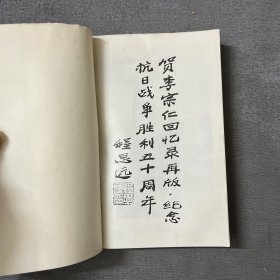 贺李宗仁回忆录再版·纪念
抗日战争胜利五十周年
程思远